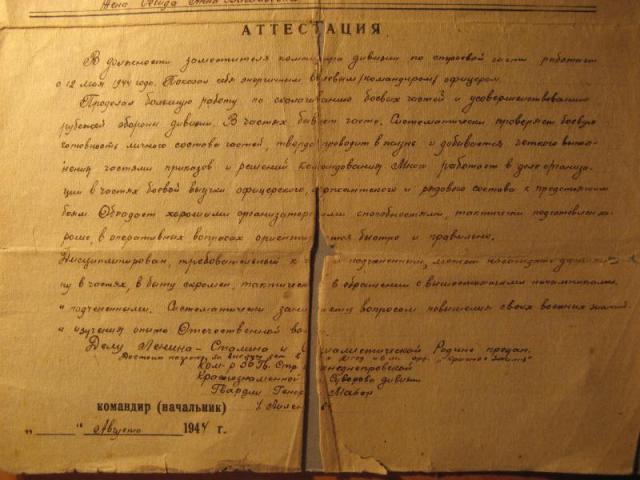 Жена
АТТЕСТАЦИЯ
В должности заместителя командира дивизии по строевой части работает
с 12 мая 1944 года. Показал себя энергичным волевым командиром офицером.
Проделал большую работу по сколачиванию боевых частей и усовершенствованию
рубежей обороны дивизии. В частях бывает часто. Систематически проверяет боевую
готовность личного состава частей, твердо проводит в жизнь и добивается четкого выпол-
нения частями приказов и решений командования. Много работает в деле организа-
ции в частях боевой выучки офицерского, сержантского и рядового состава к предстоящим
боям. Обладает хорошими организаторскими способностями, тактически подготовлен хо-
рошо, в оперативных вопросах ориентируется быстро и правильно.
Дисциплинирован, требовательный к и подчиненным, может
в частях, в быту скромен, тактичен в обращении с вышестоящими начальниками
и подчиненными. Систематически вопросом повышения своих военных знаний
и изучения опыта Отечественной
Делу Ленина-Сталина и Социалистической Родине предан.
Ком-р Гв. Стр.
Краснознаменной Суворова дивизии
Гвардии Генерал Майор
командир (начальник)
„ " Августа 1944 г.